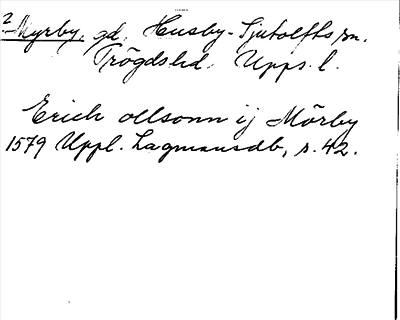 2 Myrby, gd. Husby-Sjutolfts sn.
Trögds hd. Upps. l.
Erich ollsonn ij Mörby
1579 Uppl. Lagmansdb, s. 42.